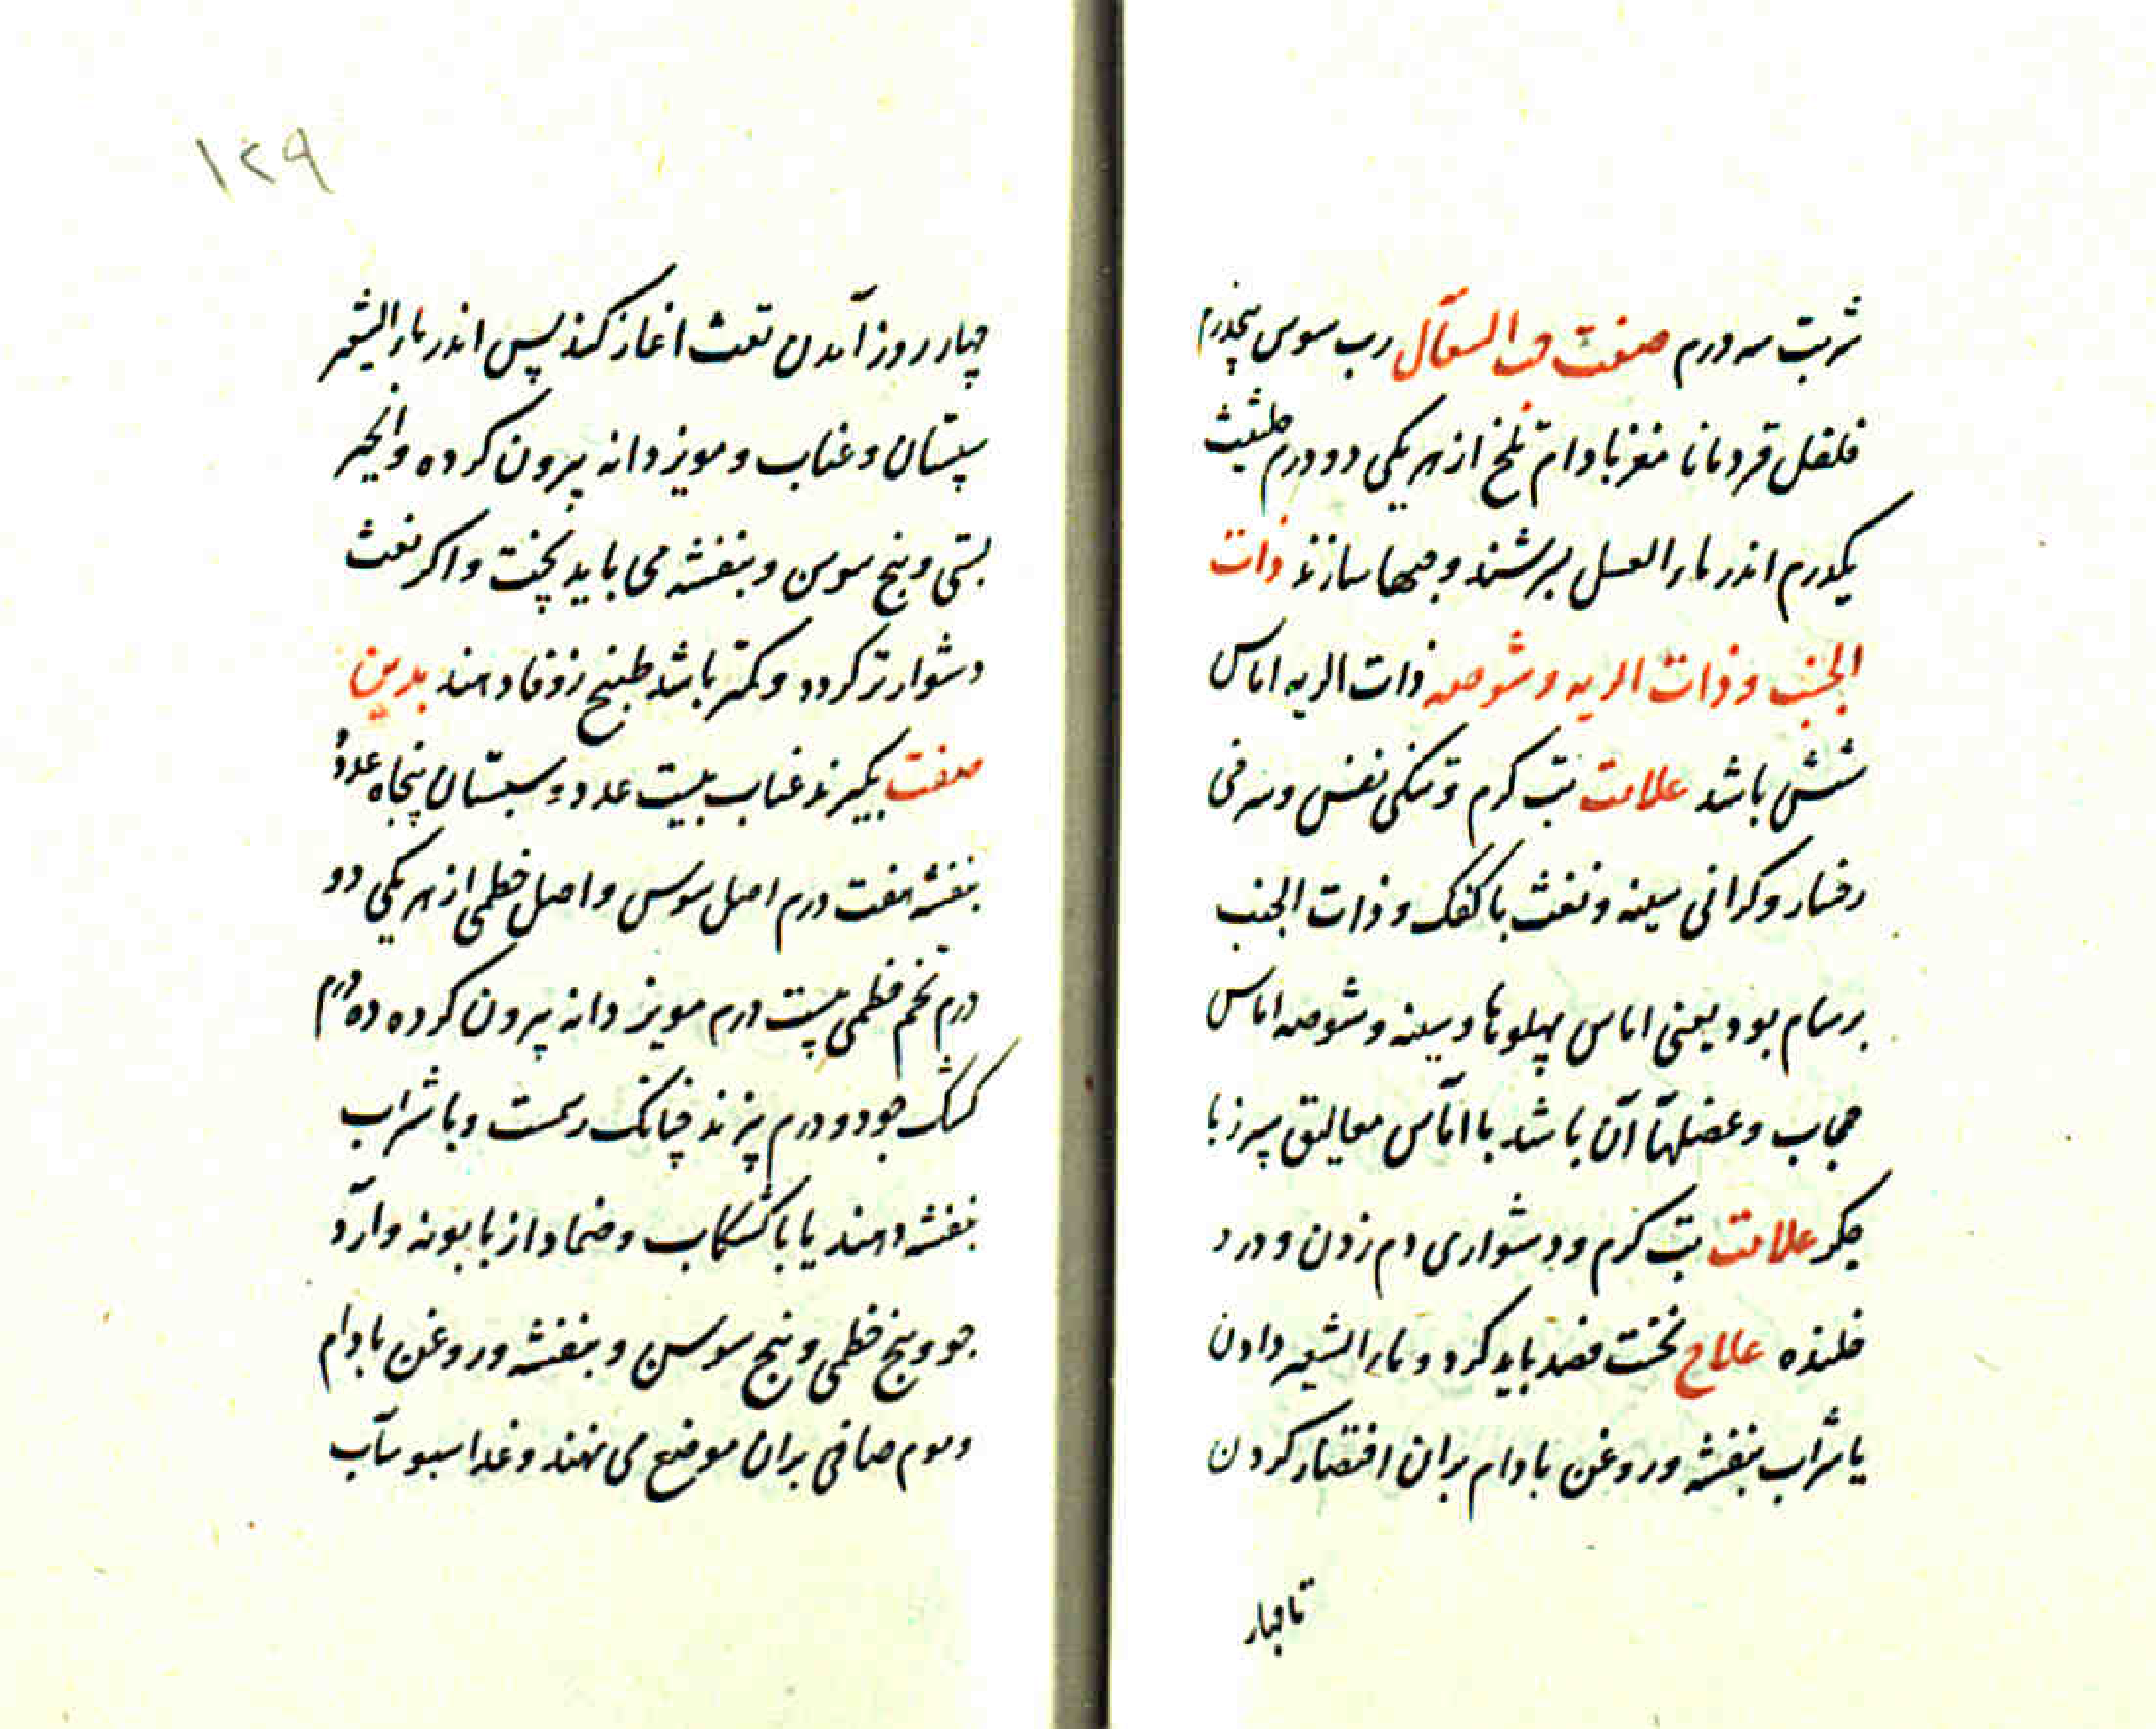 شربت سه درم صفت حب السعال رب سوس پنجدرم
فلفل قردمانا مغز بادام تلخ از هر یکی دو درم حلتیت
یکدرم اندر ماء العسل بسرشند و حبها سازند ذات
الجنب و ذات الریه و شوصه ذات الریه اماس
شش باشد علامت تب کرم و تنکی نفس و سرخی
رخسار و کرانی سینه و نفث با کفک و ذات الجنب
برسام بود یعنی اماس پهلوها و سینه و شوصه اماس
حجاب و عضلهآ آن باشد با اماس معالیق سپرز یا
جکر علامت تب کرم و دشواری دم زدن و درد
خلنده علاج نخست فصد باید کرد و ماء الشعیر دادن
یا شراب بنفشه و روغن بادام بران اقتصار کردن
تا چهار
۱۲۹
چهار روز آمدن نفث اغاز کند پس اندر ماء الشعیر
سپستان و عناب و مویز دانه بیرون کرده و انجیر
بستی و بیخ سوس و بنفشه می باید پخت و اکر نفث
دشوارتر کردد و کمتر باشد طبیخ زوفا دهند بدین
صفت بکیرند عناب بیست عدد و سپستان پنجاه عدد
بنفشه هفت درم اصل سوس و اصل خطمی از هر یکی دو
درم تخم خطمی بیست درم مویز دانه بیرون کرده ده درم
کشک جو دو درم پزند چنانک رسمست و با شراب
بنفشه دهند یا با کشکاب و ضماد از بابونه و آرد
جو و بیخ خطمی و بیخ سوسن و بنفشه و روغن بادام
و موم صافی بران موضع می نهند و غدا سبوسآب